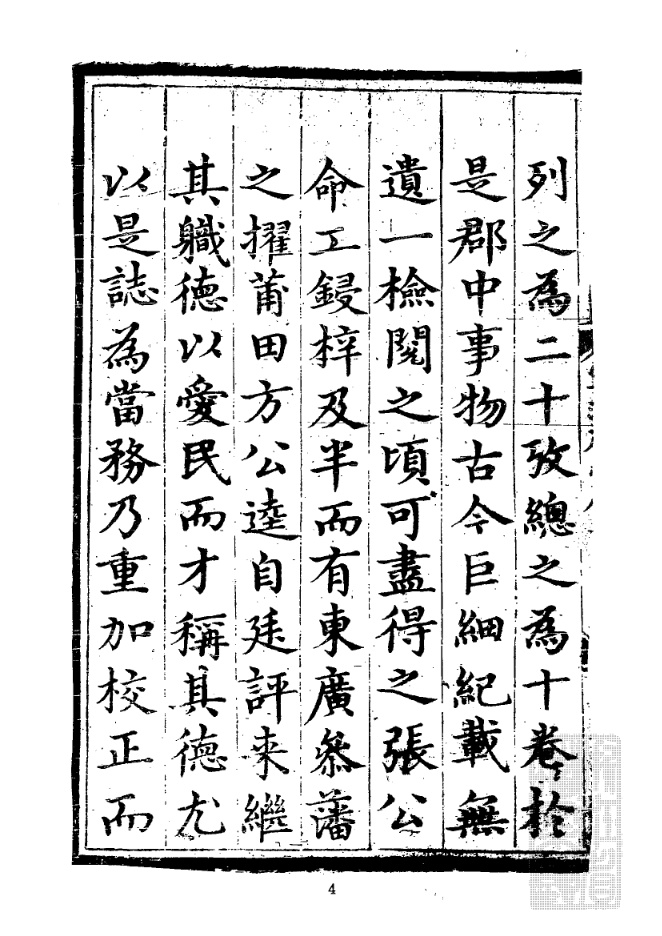 列之為二十攷總之為十卷於
是郡中事物古今巨細紀載無
遺一檢閱之頃可盡得之張公
命工鋟梓及半而有東廣叅藩
之擢莆田方公逵自廷評来繼
其職德以愛民而才稱其德尤
以是誌為當務乃重加校正而
4